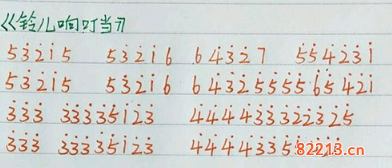 《铃儿响叮当》
5 3̇ 2̇ 1̇ 5 5 3̇ 2̇ 1̇ 6 6 4̇ 3̇ 2̇ 7 5̇ 5̇ 4̇ 2̇ 3̇ 1̇
5 3̇ 2̇ 1̇ 5 5 3̇ 2̇ 1̇ 6 6 4̇ 3̇ 2̇ 5̇ 5̇ 5̇ 5̇ 6̇ 5̇ 4̇ 2̇ 1̇
3̇ 3̇ 3̇ 3̇ 3̇ 3̇ 3̇ 5̇ 1̇ 2̇ 3̇ 4̇ 4̇ 4̇ 4̇ 3̇ 3̇ 3̇ 2̇ 2̇ 3̇ 2̇ 5̇
3̇ 3̇ 3̇ 3̇ 3̇ 3̇ 3̇ 5̇ 1̇ 2̇ 3̇ 4̇ 4̇ 4̇ 4̇ 3̇ 3̇ 5̇
82213.cn